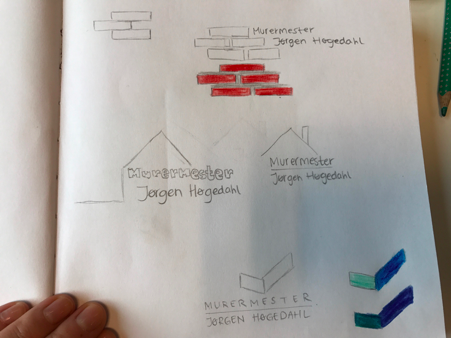 Murermester
Jørgen Høgedahl
Murermester
Jørgen Høgedahl
Murermester
Jørgen Høgedahl
MURERMESTER
JØRGEN HØGEDAHL